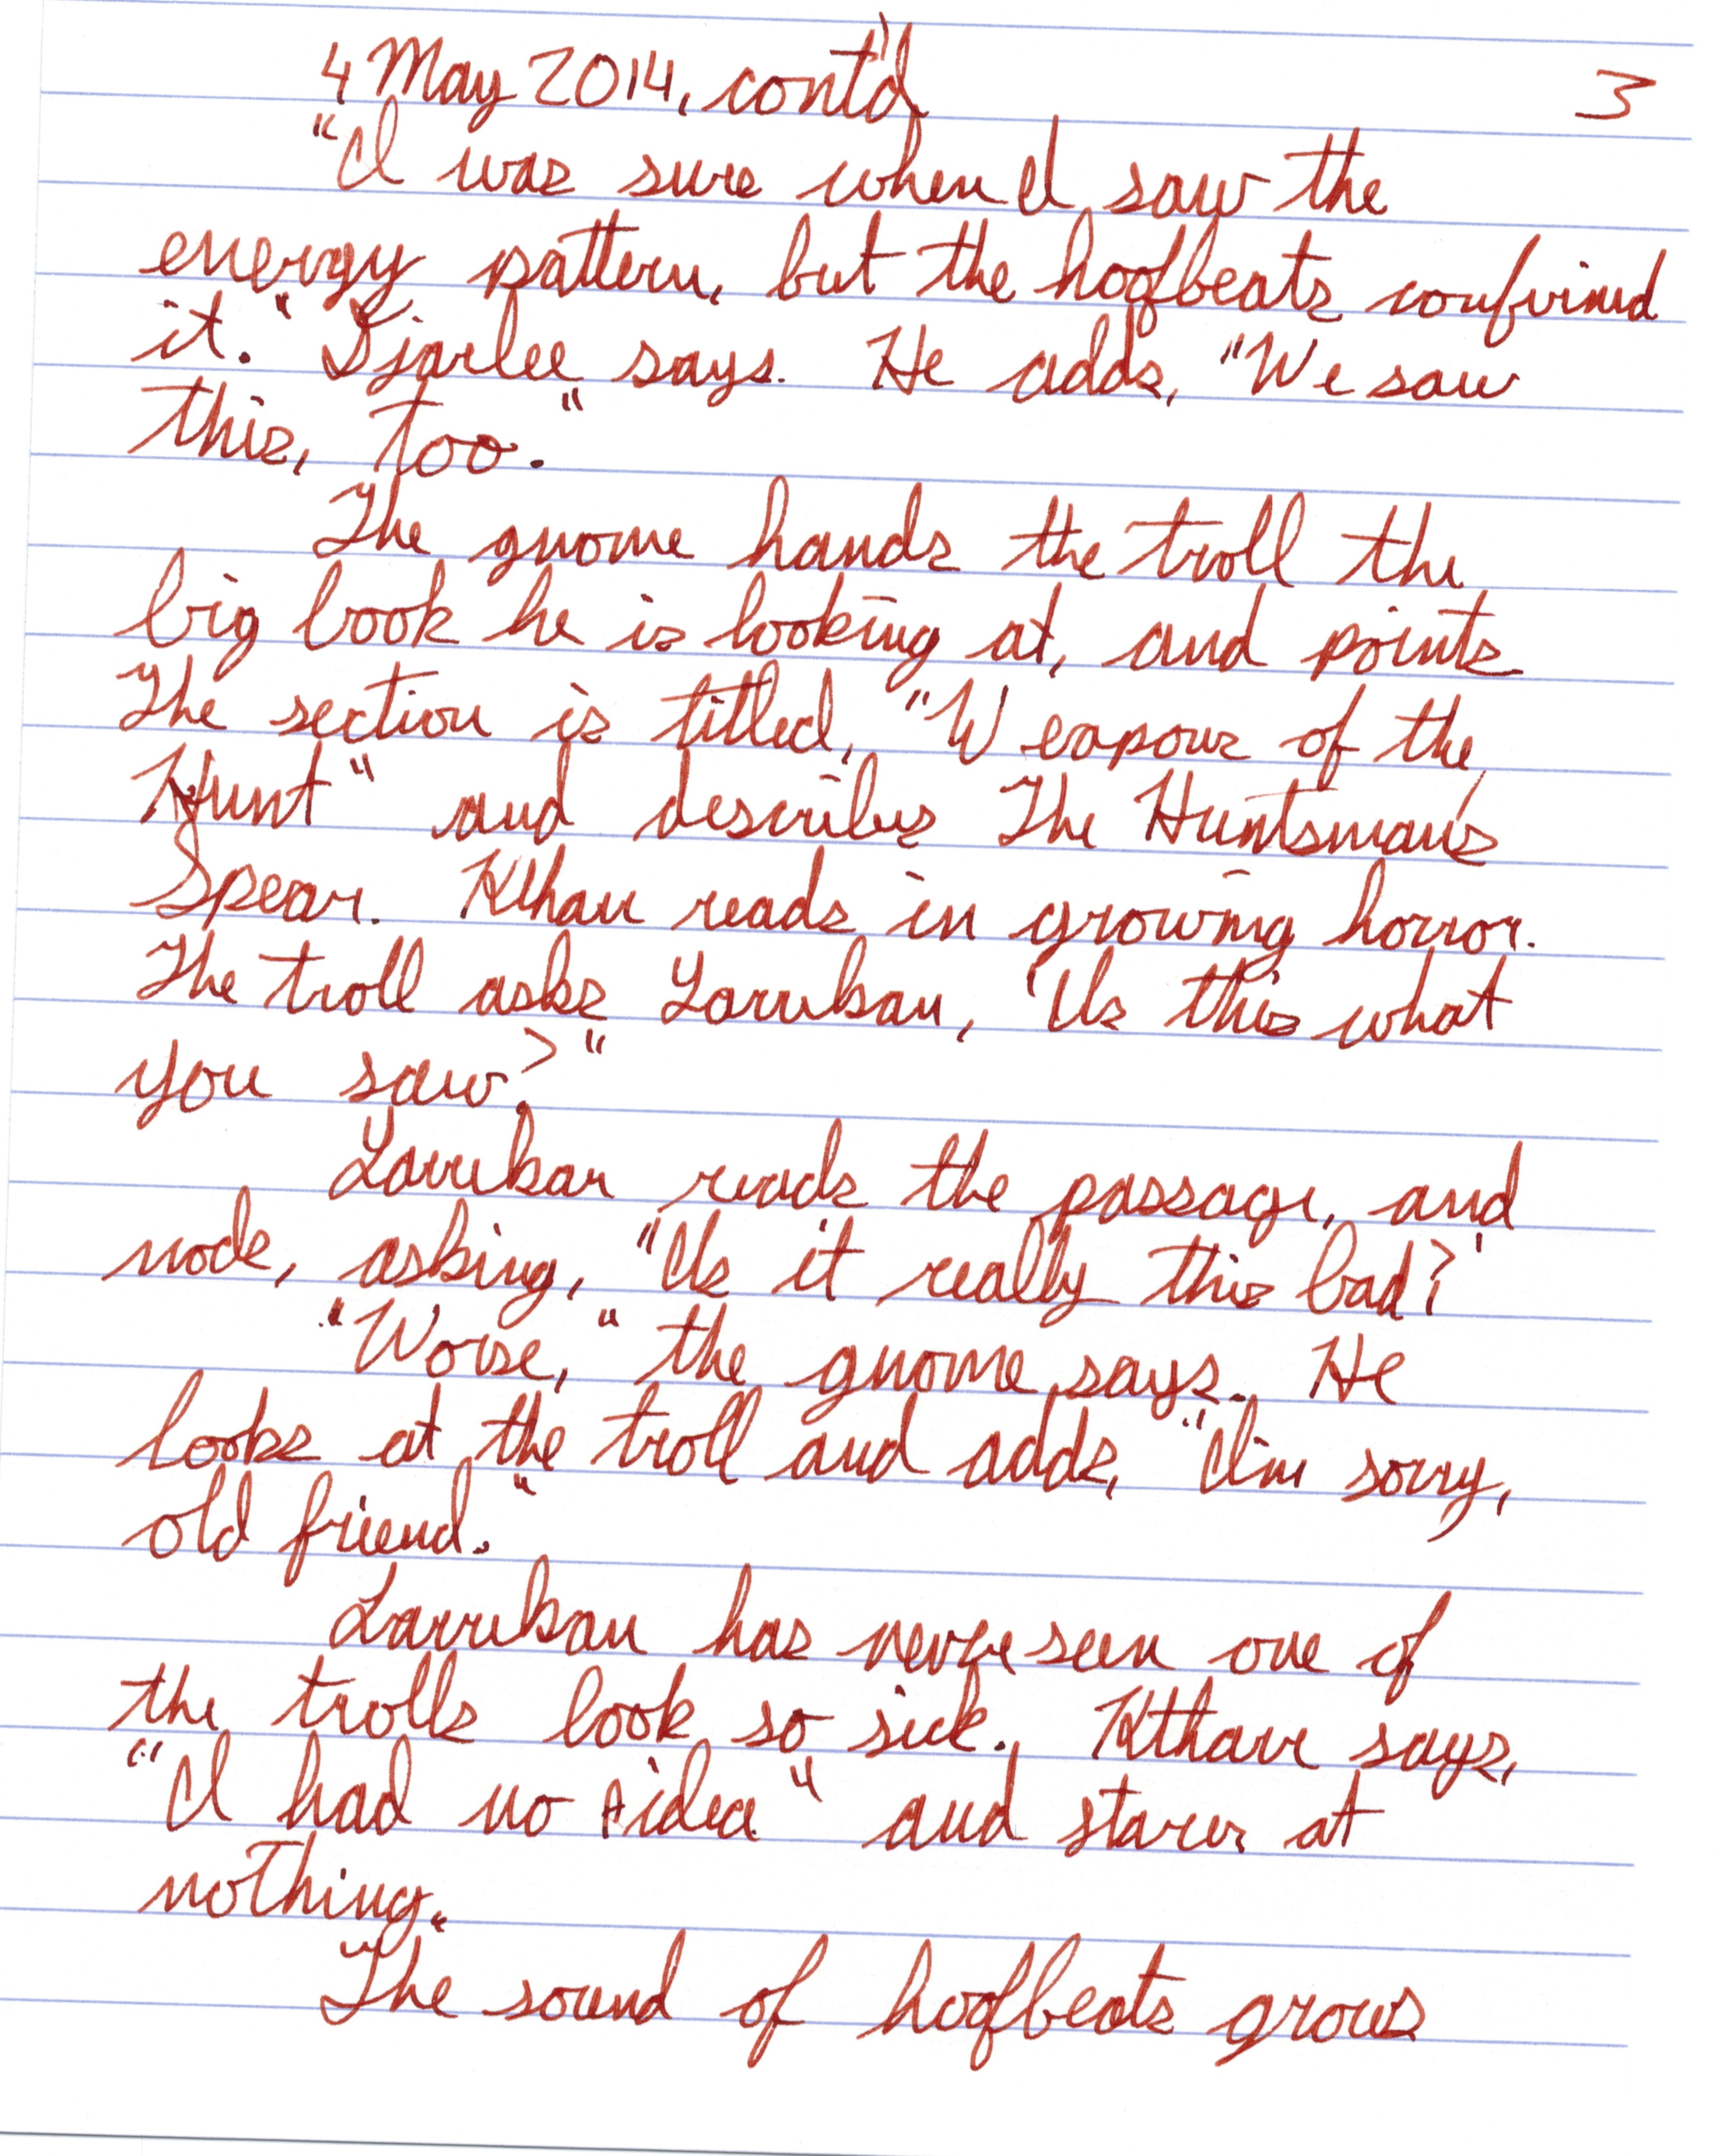 4 May 2014, cont'd 3
"I was sure when I saw the
energy pattern, but the hoofbeats confirmed
it." Djarlee says. He adds, "We saw
this, too."
The gnome hands the troll the
big book he is looking at, and points
The section is titled, "Weapons of the
Hunt" and describes The Huntsman's
Spear. Kthan reads in growing horror.
The troll asks Larrikan, "Is this what
you saw?"
Larrikan reads the passage, and
nods, asking, "Is it really this bad?"
"Worse," the gnome says. He
looks at the troll and adds, "I'm sorry,
old friend."
Larrikan has never seen one of
the trolls look so sick. Kthan says,
"I had no idea" and stares at
nothing.
The sound of hoofbeats grows